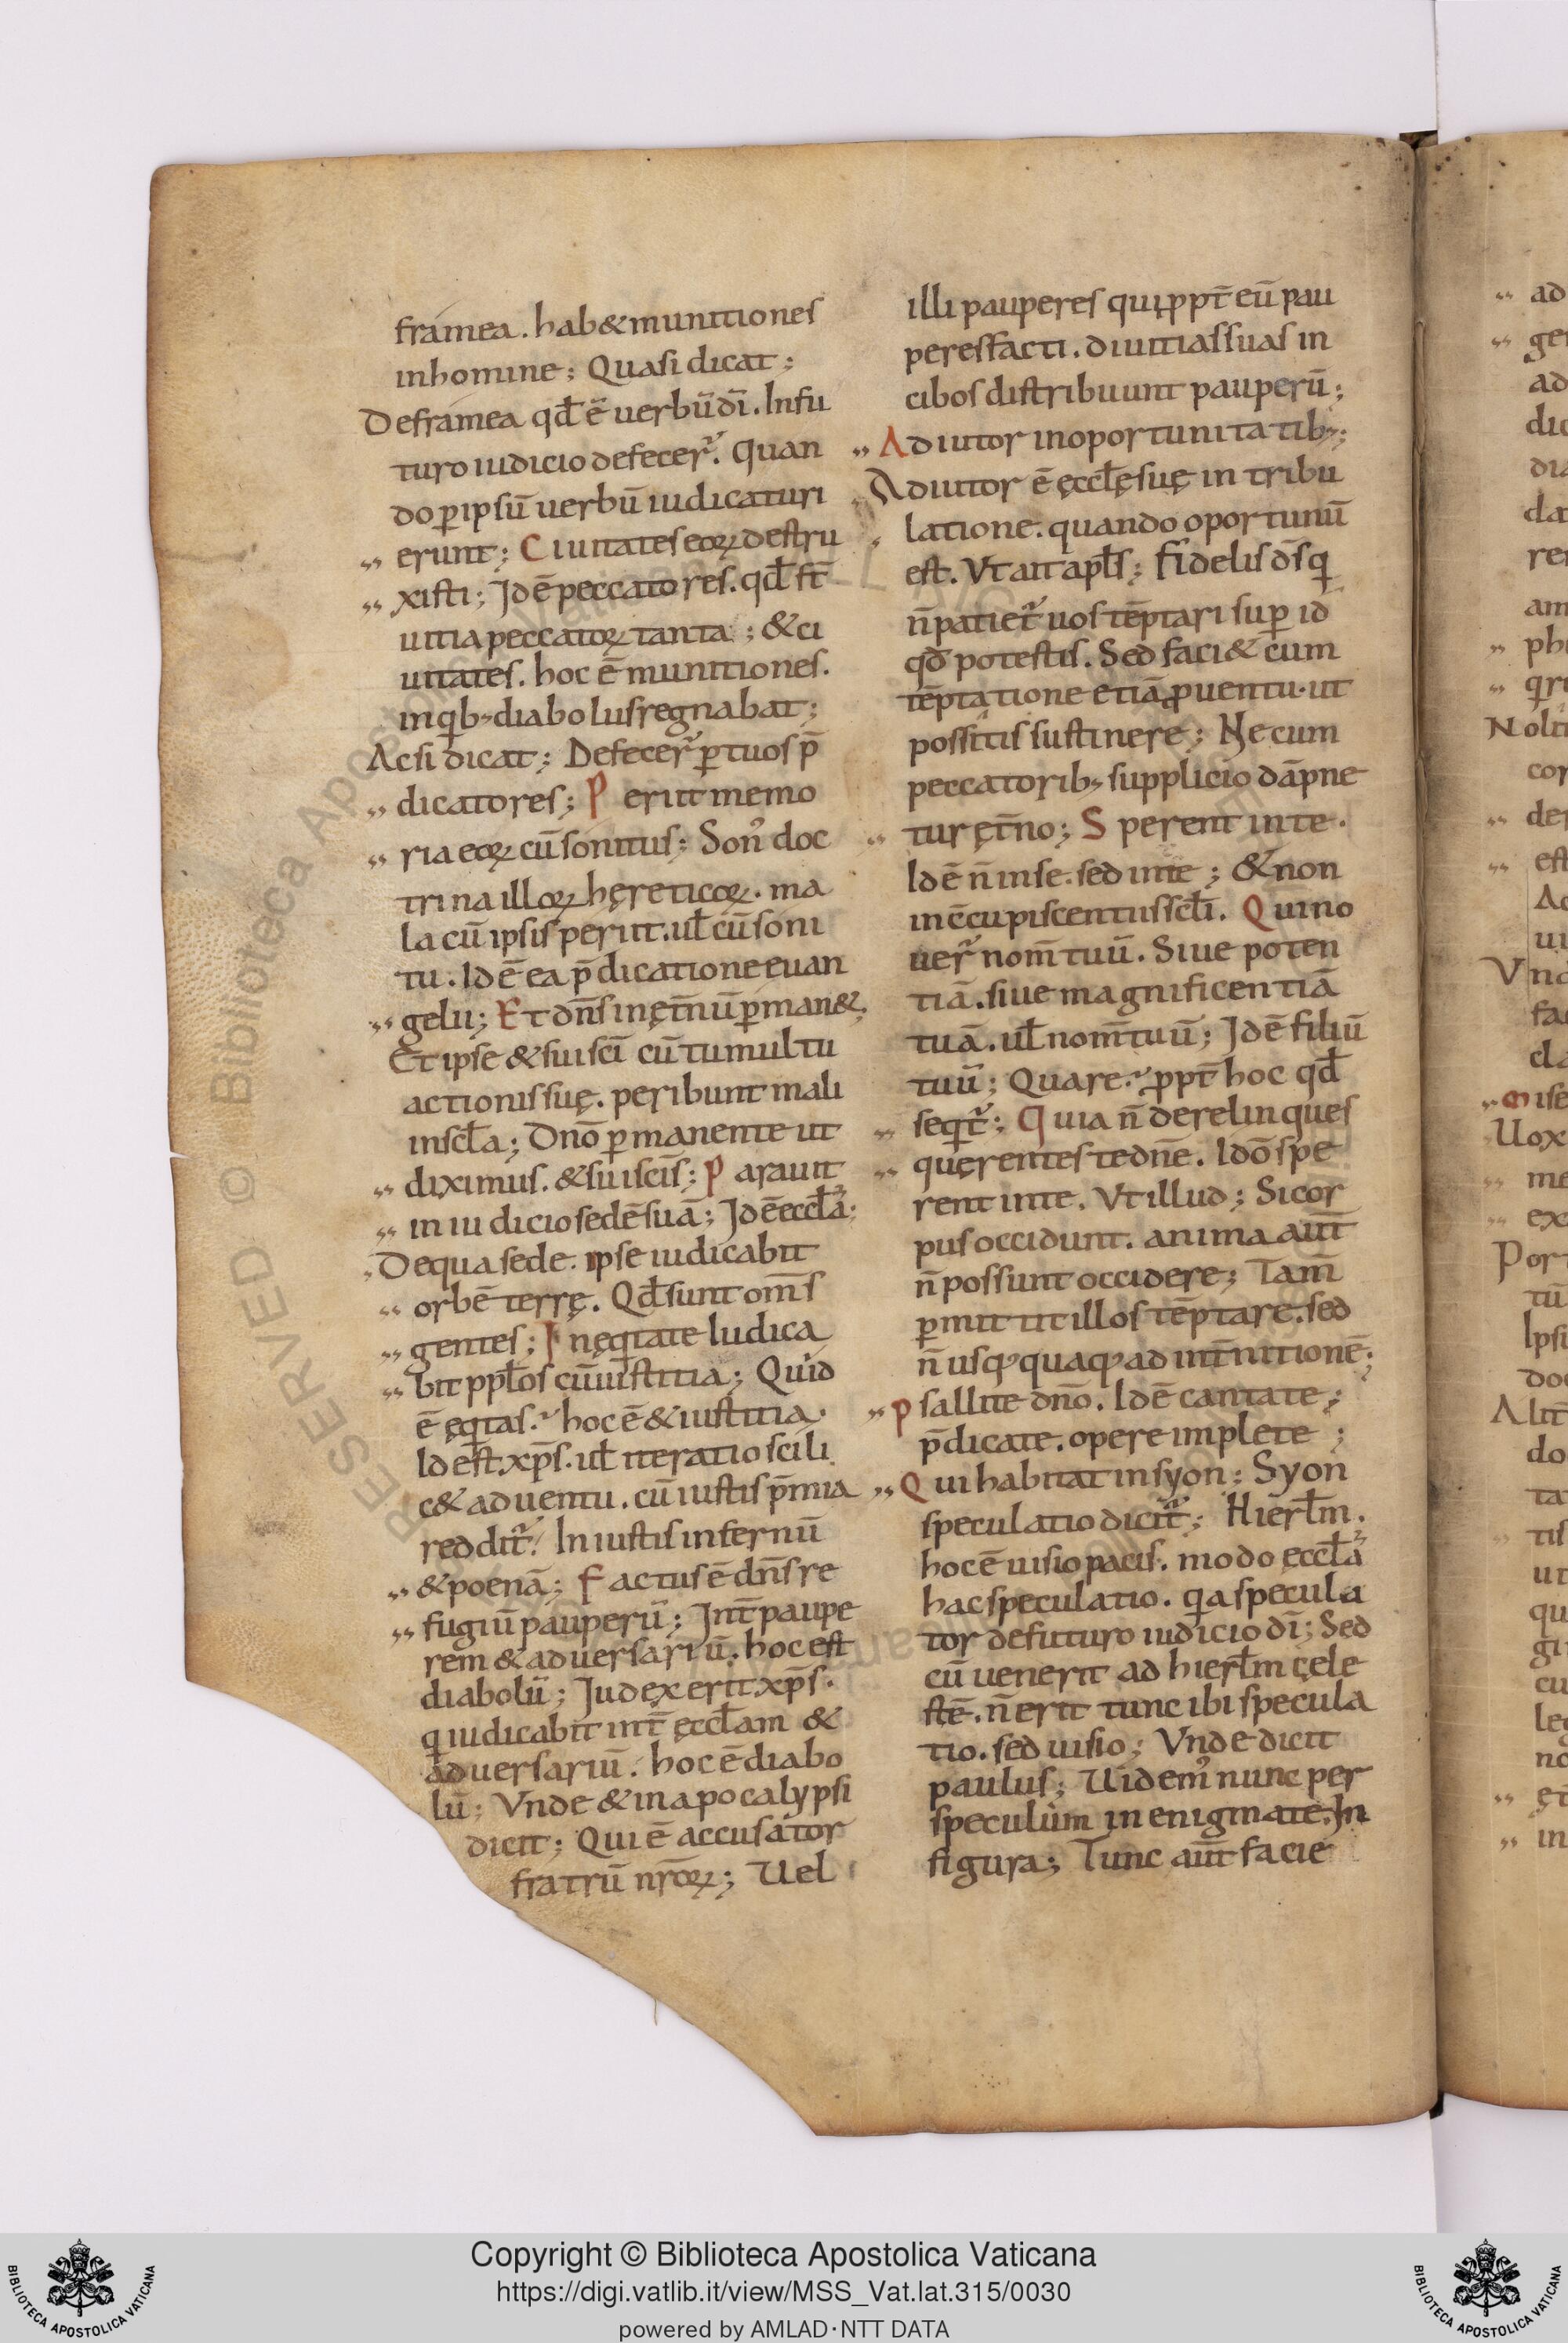 framea. hab& munitiones
in homine; Quasi dicat;
De framea qđ ē uerbū dī. In fu
turo iudicio defecer̃. Quan
do ꝑ ipsū uerbū iudicaturi
erunt; Ciuitates eoꝝ destru
xisti; Id ē peccatores. qđ st̄
uitia peccatoꝝ tanta; & ci
uitates. hoc ē munitiones.
in qib; diabolus regnabat;
Ac si dicat; Defecer̃ ꝑ tuos p̄
dicatores; Periit memo
ria eoꝝ cū sonitus; Son᾽ doc
trina illoꝝ hęreticoꝝ. ma
la cū ipsis periit. uł cū soni
tu. Id ē ea p̄dicatione euan
gelii; Et dn̄s in ęt̄nū ꝑman&.
Et ipse & sui sc̄i cū tumultu
actionis suę. peribunt mali
in scła; Dn̄o ꝑmanente ut
diximus. & suis sc̄is; Parauit
in iudicio sedē suā; Id ē ecclã;
De qua sede. ipse iudicabit
orbē terrę. Qđ sunt om̄s
gentes; In ęqitate Iudica
bit ppłos cū iustitia; Quid
ē ęqitas? hoc ē & iustitia.
Id est xp̄s. uł iteratio scili
c& aduentu. cū iustis p̄mia
reddit̃. Iniustis infernū
& poenā; Factus ē dn̄s re
fugiū pauperū; Int̄ paupe
rem & aduersariū. hoc est
diabolū; Iudex erit xp̄s.
qi iudicabit int̄ ęccłam &
aduersariū. hoc ē diabo
lū; Vnde & in apocalypsi
dicit; Qui ē accusator
fratrū nr̄oꝝ; Uel
illi pauperes qui ppt̄ eū pau
peres facti. diuitias suas in
cibos distribuunt pauperū;
Adiutor in oportunitatib;
Adiutor ē ęccłę suę in tribu
latione. quando oportunū
est. Vt ait apłs; Fidelis d̄s qi
n̄ patiet̃ uos tēptari sup̄ id
qđ potestis. Sed faci& cum
tēptatione etiā ꝓuentu. ut
possitis sustinere; Ne cum
peccatorib; supplicio dāpne
tur ęt̄no; Sperent in te.
Id ē n̄ in se. sed in te; & non
in c̄cupiscentiis scłi. Qui no
uer̃ nom̄ tuū. Siue poten
tiā. siue magnificentiā
tuā. uł nom̄ tuū; Id ē filiū
tuū; Quare? ppt̄ hoc qđ
seqit̃; Quia n̄ derelinques
quęrentes te dn̄e. Idō spe
rent in te. Vt illud; Si cor
pus occidunt. anima aut̄
n̄ possunt occidere; Tam̄
ꝑmittit illos tēptare. sed
n̄ usq; quaq; ad int̄nitionē;
Psallite dn̄o. Id ē cantate;
p̄dicate. opere implete;
Qui habitat in syon; Syon
speculatio dicit̃; Hierłm.
hoc ē uisio pacis. modo ęccłã
hac speculatio. qia specula
tor de futuro iudicio dī; Sed
cū uenerit ad hierłm cęle
stē. n̄ erit tunc ibi specula
tio. sed uisio; Vnde dicit
paulus; Uidem᾽ nunc per
speculum in enigmate. In
figura; Tunc aut̄ facie
Copyright © Biblioteca Apostolica Vaticana
https://digi.vatlib.it/view/MSS_Vat.lat.315/0030
powered by AMLAD·NTT DATA